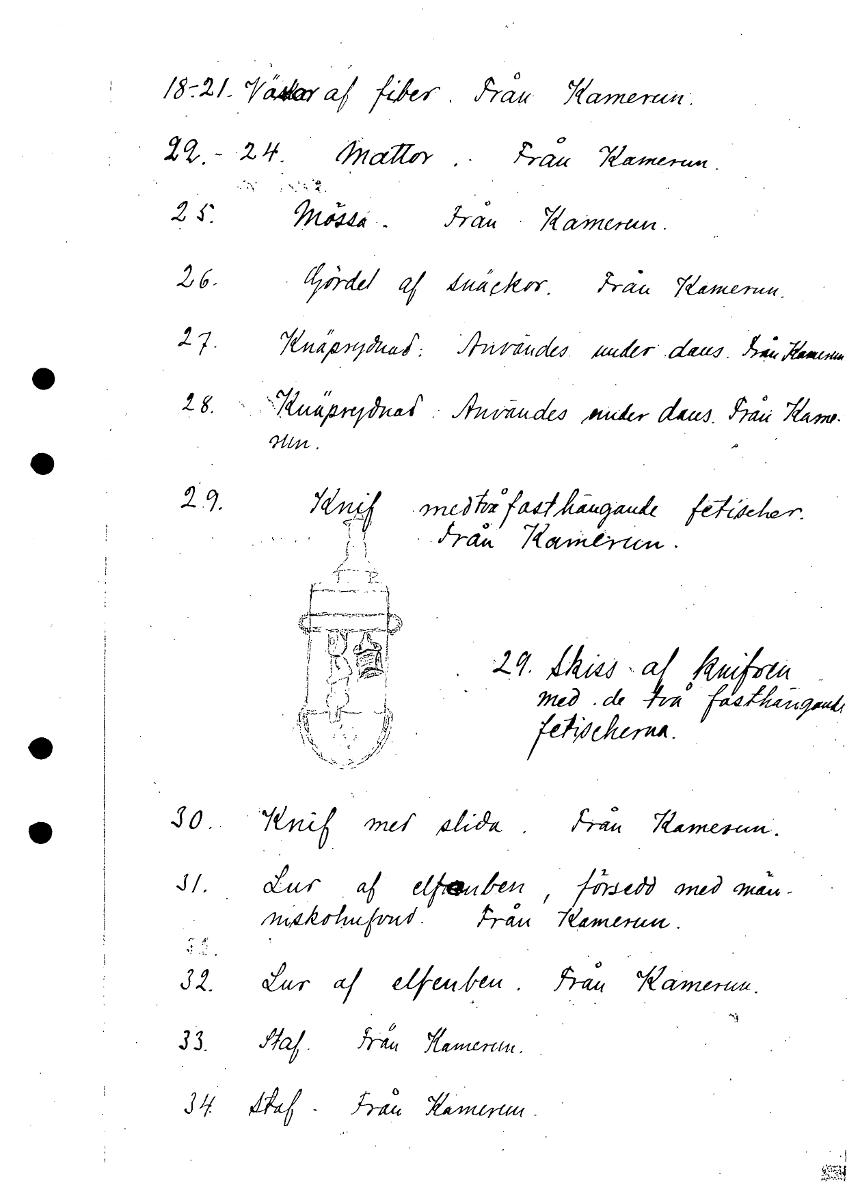 18-21. Väskor af fiber. Från Kamerun.
22.-24. Mattor. Från Kamerun.
25. Mössa. Från Kamerun.
26. Gördel af snäckor. Från Kamerun.
27. Knäprydnad. Användes under dans. Från Kamerun
28. Knäprydnad. Användes under dans. Från Kame-
run.
29. Knif med två fasthängande fetischer.
Från Kamerun.
29. Skiss af knifven
med de två fasthängande
fetischerna.
30. Knif med slida. Från Kamerun.
31. Lur af elfenben, försedd med män-
niskohufvud. Från Kamerun.
32. Lur af elfenben. Från Kamerun.
33. Staf. Från Kamerun.
34 Staf. Från Kamerun.